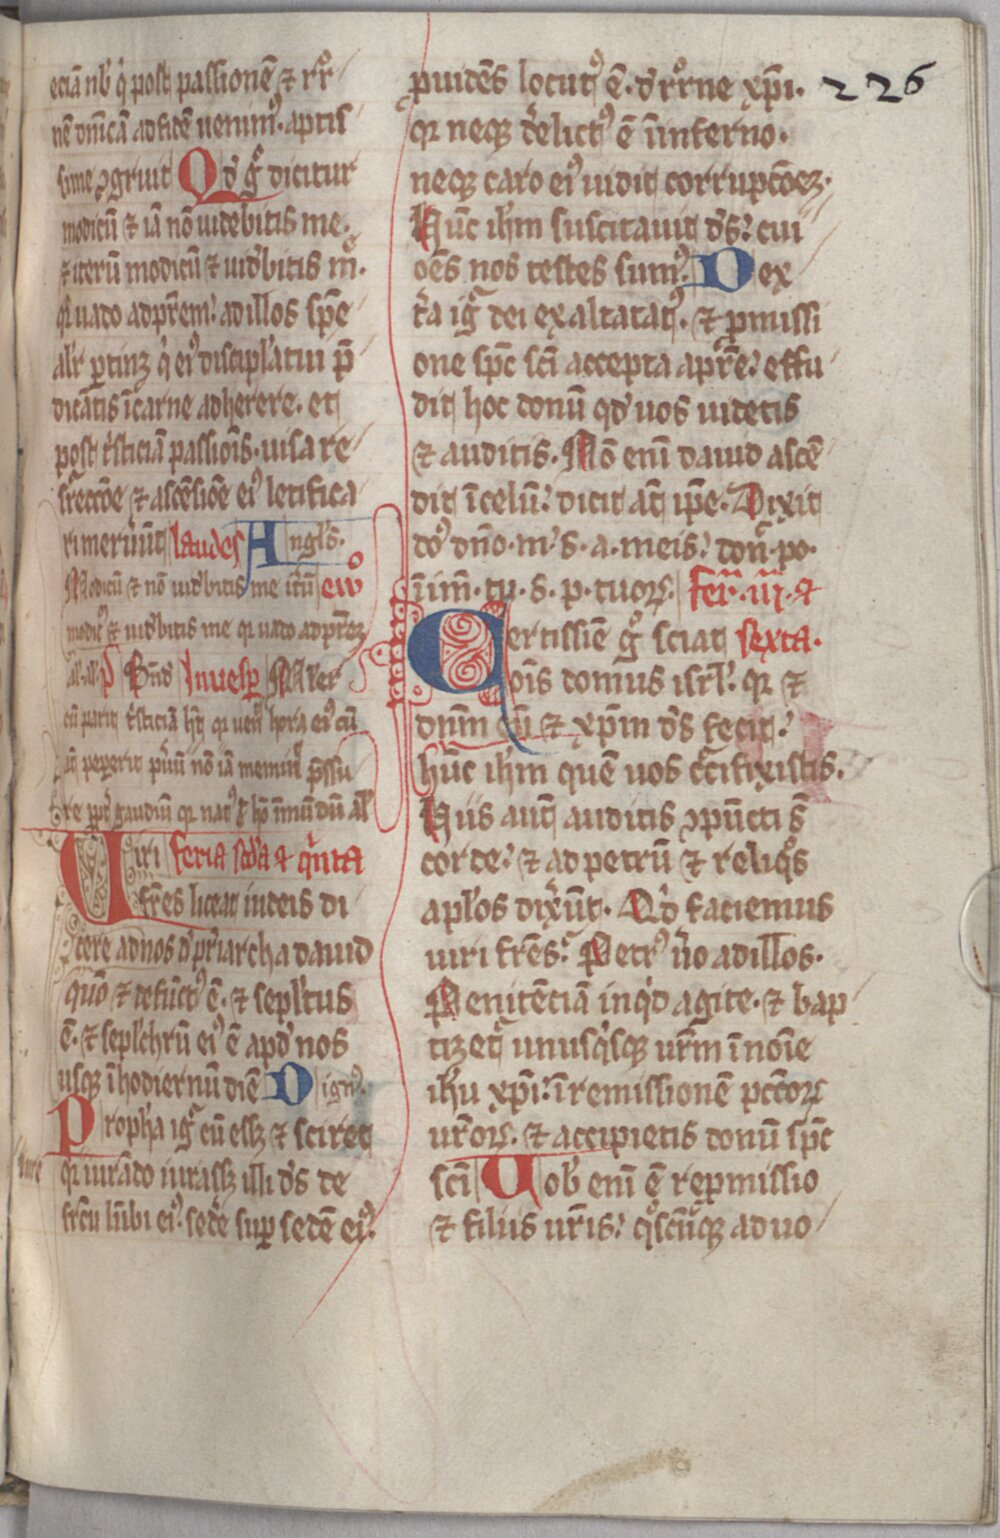 eciā nb' q̇ post passionē ⁊ rr̄
nē dn̄icā ad fidē uenim᷒. aptis
sime ꝯgruit Qd' g̊ dicitur
modicū ⁊ iā nō uidebitis me.
⁊ iterū modicū ⁊ uid'bitis m̊.
q̄ uado ad pr̄em: ad illos sp̄e
alr̄ ꝑtinꝫ q̇ ei᷒ discipl'atui p̄
dicātis ī carne adherere. et
post t'sticiā passiois. uisa re
srrectōe ⁊ ascēsiōe ei᷒ letifica
ri meruūt laudes Angl's.
Modicū ⁊ nō uid'bitis me itū euo
modic᷒ ⁊ uid'bitis me q̄ uado ad prēꝫ
al'. al'. p̄ Bn̄d In uesp̄ Mulier
cū parit t'sticiā hꝫ q̄ uen̄ hora ei᷒ cū
aū pepererit pu'ū nō iā meminit p̄ssu
re ꝓpt' gaudiū q̄ nat᷒ ē hō ī mūdū al'
Uiri feria scd'a ⁊ q̄nta
fr̄es liceat indeis di
cere ad nos d' pr'iarcha dauid
quō ⁊ defūct᷒ ē. ⁊ sepl'tus
ē. ⁊ seplchrū ei᷒ ē apd' nos
usqꝫ ī hodiernū diē Dign᷒.
Proph'a ig̊ cū essꝫ ⁊ sciret
q̄ iurādo iurassꝫ illi d's de
frc̄u lūbi ei᷒: sede' suꝑ sedē ei᷒:
ꝓuidēs locut᷒ ē. d' rr̄ne xp̄i. 226
q̄ neqꝫ d'elict᷒ ē ī inferno.
neqꝫ caro ei᷒ uidit corrupcōeꝫ.
Hūc ih'm suscitauit d's: cui
oēs nos testes sum᷒: Dex
t'a ig̊ dei exaltatat᷒. ⁊ ꝓmissi
one sp̄c sc̄i accepta a pr̄e: effu
dit hoc donū qd' uos uidetis
⁊ auditis. Nō eni dauid ascē
dit ī celū: dicit aū ip̄e. Dixit
do᷒ dn̄o. m'. s. a. meis: don̄. po.
īim̄. tu. s. p. tuoꝝ. fer̄. iij. ⁊
Certissiē g̊ sciat sexta.
oīs domus isrl'. q̄ ⁊
dn̄m eū ⁊ xp̄m d's fecit:
hūc ih'm quē uos cc̄ifixistis.
Hiis aut auditis ꝯpūcti s̄
corde: ⁊ ad petrū ⁊ reliq̊s
apl'os dixūt. Qd' faciemus
uiri fr̄es: Petr᷒ ůo ad illos.
Penitēciā inqd' agite. ⁊ bap
tizet᷒ unusq'sqꝫ ur̄m ī noīe
ih'u xp̄i: ī remissionē pctōꝝ
ur̄oꝝ. ⁊ accipietis donū sp̄c
sc̄i Uob' eni ē repmissio
⁊ filiis ur̄is: q̊scūqꝫ aduo